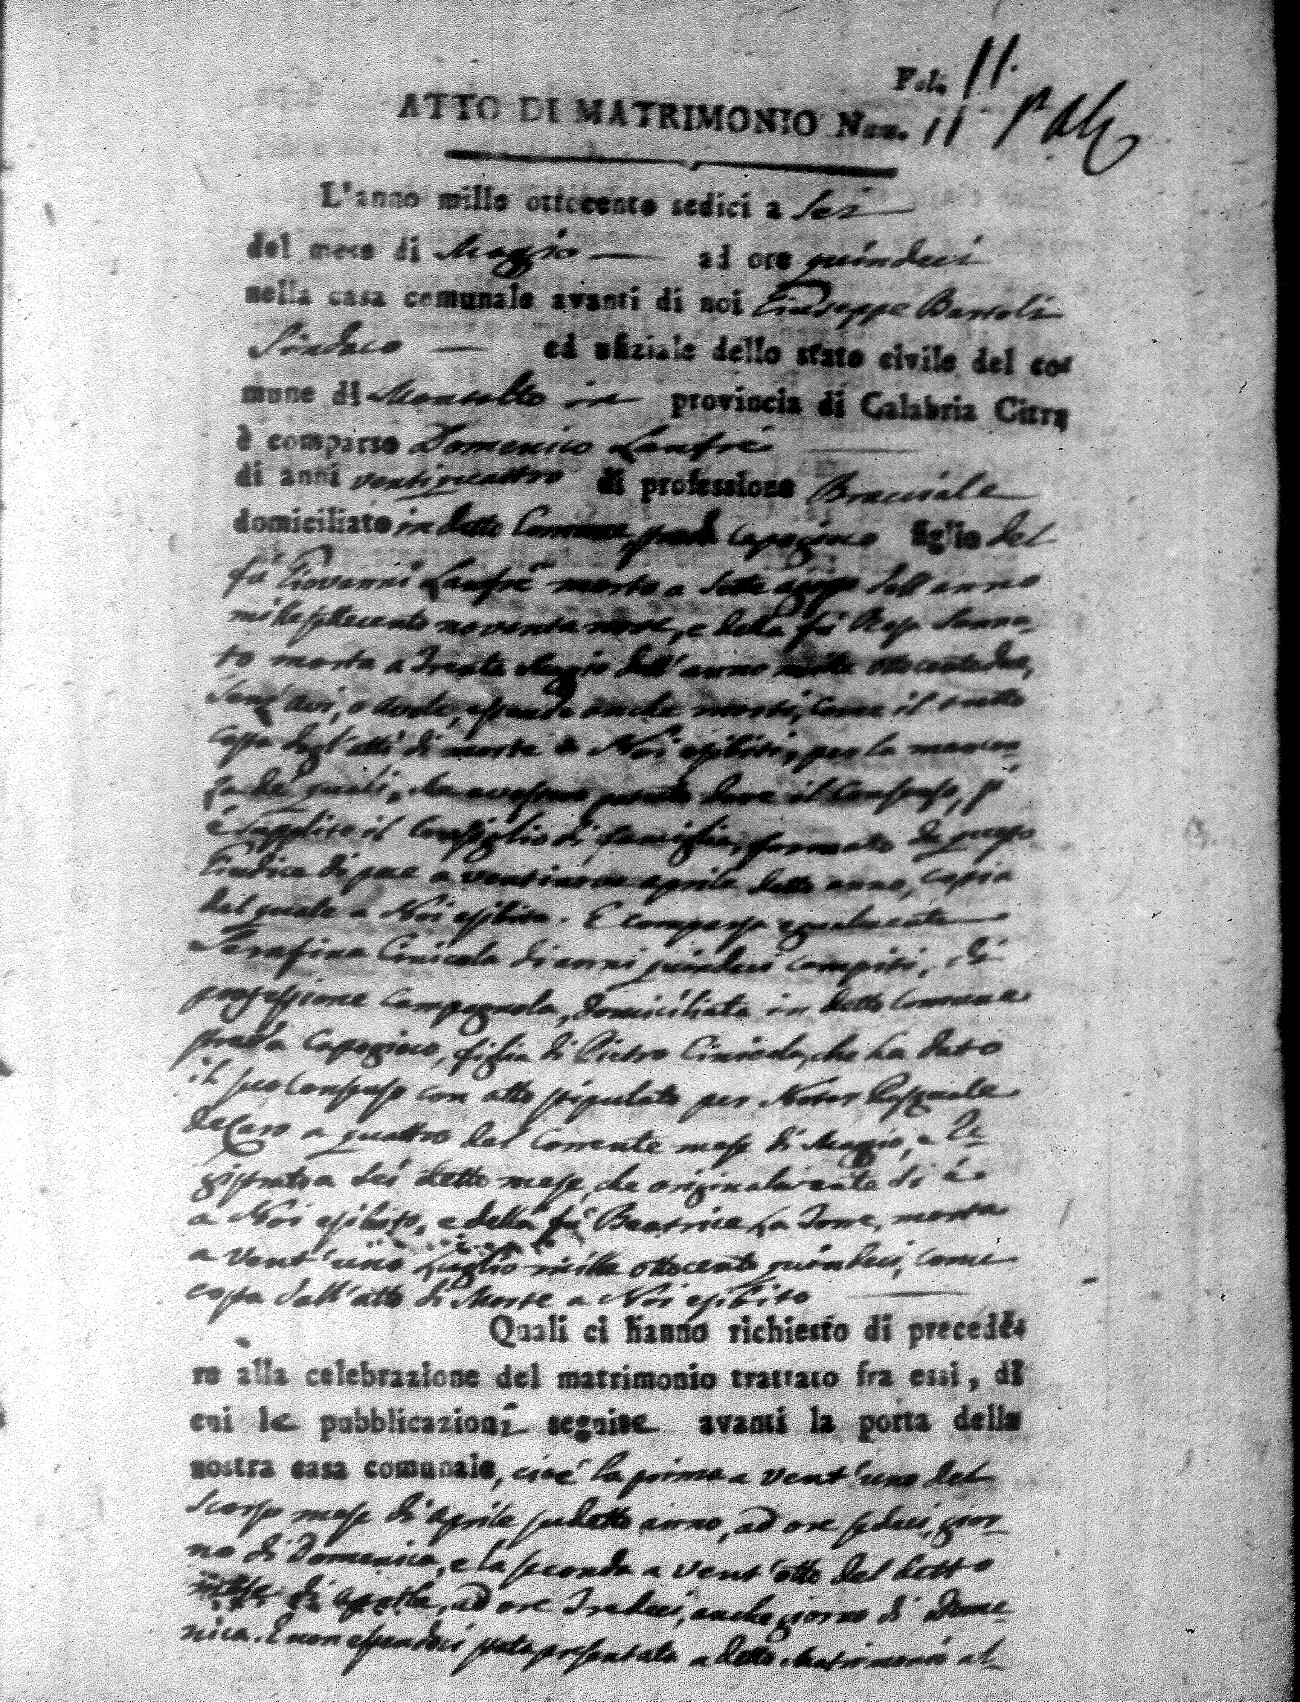 Fol. 11.
ATTO DI MATRIMONIO Num. 11
L'anno mille ottocento sedici a Sei
del mese di Maggio ad ore quindeci
nella casa comunale avanti di noi Giuseppe
Sindaco ed ufiziale dello stato civile del co-
mune di Montalto in provincia di Calabria Citra
è comparso Domenico Lanfrè
di anni ventiquattro di professione Bracciale
domiciliato in detto Comune strada Capogioco figlio del
fù Giovanni Lanfrè morto a Sette dell'anno
millesettecento novanta nove, e della fù
to morta a Trenta Maggio dell'anno mille ottocento due,
avi, e essendo anche morti, come il tutto
copia degl'atti di morte a Noi esibiti, per la mancan-
za de quali, che avessero potuto dare il Consenso, si
è supplito il Consiglio di famiglia, formato da questo
Giudice di pace a ventinove aprile detto anno, copia
del quale a Noi esibita. E comparsa egualmente
Serafina Cinicola di anni quindeci compiti, di
professione Campagnola, domiciliata in detto Comune
strada Capogioco, figlia di Pietro Cinicola, che ha dato
il suo Consenso con atto stipulato per Notar Pasquale
de Caro a quattro del corrente mese di Maggio, e Re-
gistrato a sei detto mese, che originalmente si è
a Noi esibito, e della fù Beatrice La Torre, morta
a vent'uno Luglio mille ottocento quindeci, come
copia dall'atto di Morte a Noi esibito
Quali ci hanno richiesto di precede-
re alla celebrazione del matrimonio trattato fra essi, di
cui le pubblicazioni seguite avanti la porta della
nostra casa comunale, cioè la prima a vent'uno del
Scorso mese di Aprile sudetto anno, ad ore sedici, gior-
no di Domenica, e la seconda a vent'otto del detto
mese di aprile, ad ore Tredeci, anche giorno di Dome-
nica. E non essendoci stata presentata a detto Matrimonio al-